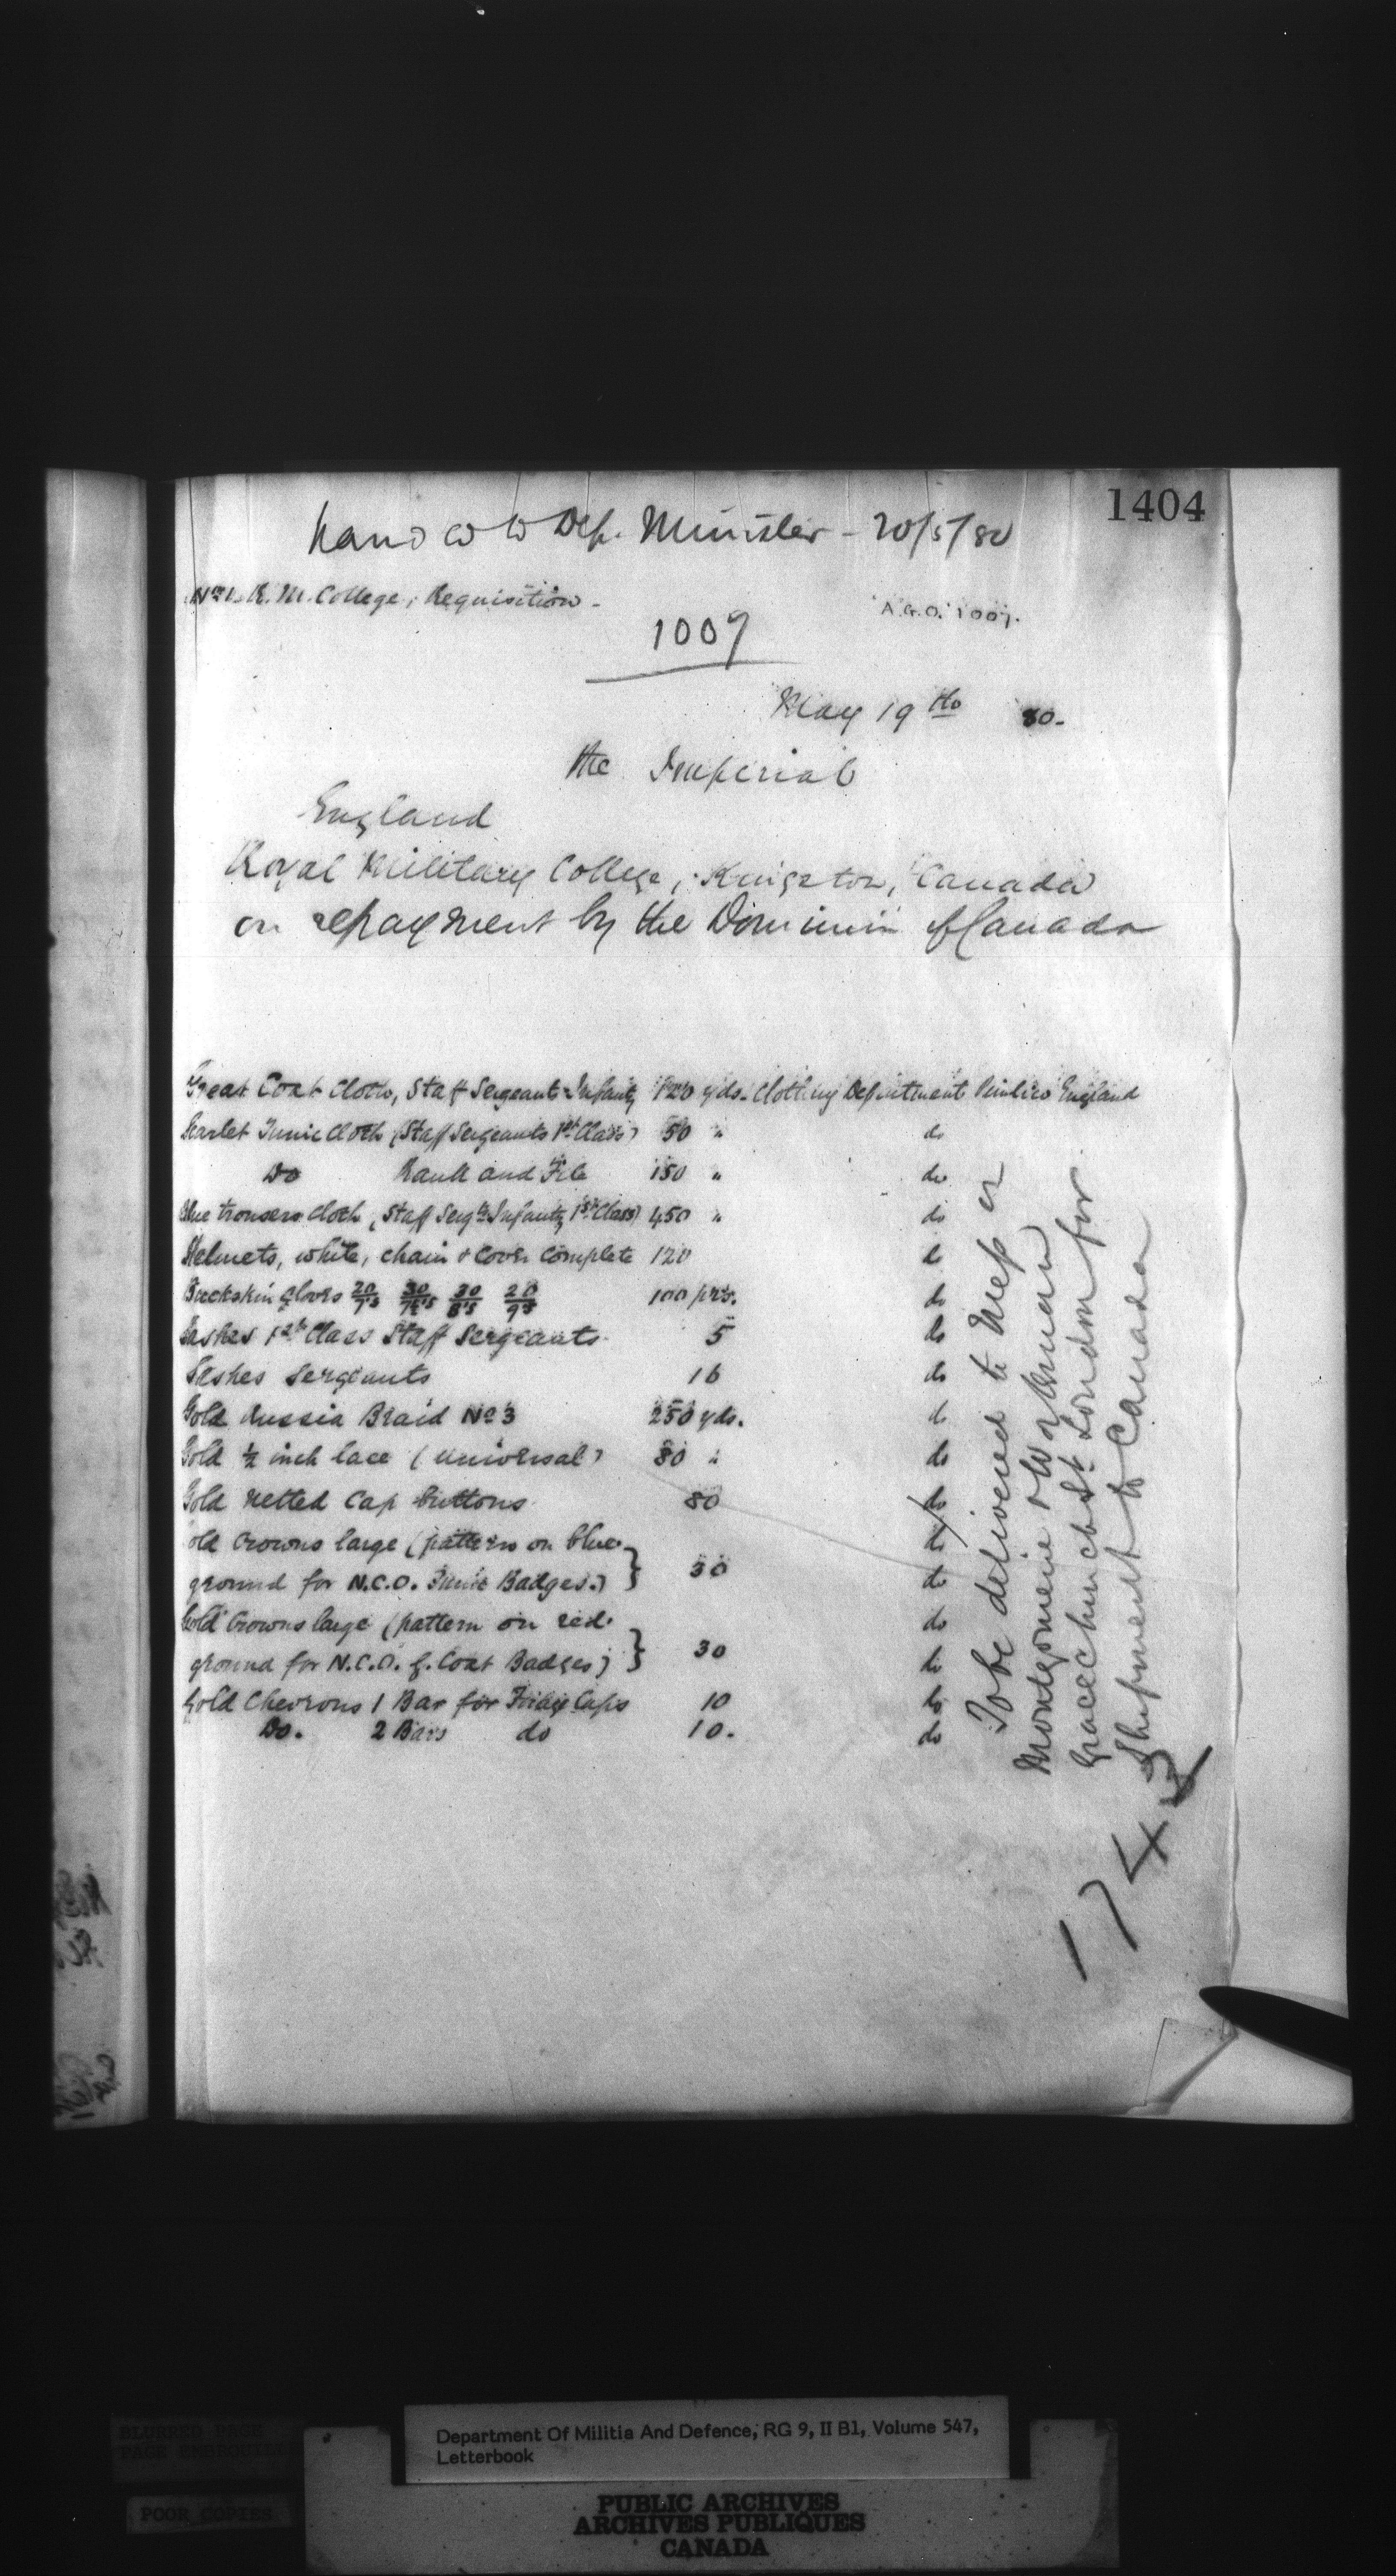 1404
Handed to Dep. Minister - 20/5/80
No 1. R. M. College, Requisition -
A.G.O. 1007.
1007
May 19th 80.
the Imperial
England
Royal Military College, Kingston, Canada
on repayment by the Dominion of Canada
Great Coat Cloth, Staff Sergeants Infantry 120 yds. Clothing Department Pimlico England
Scarlet Tunic Cloth (Staff Sergeants 1st Class) 50 " do
Do Rank and File 150 " do
Blue trousers cloth, (Staff Sergts Infantry 1st Class) 450 " do
Helmets, white, chain & Cover Complete 120 do
Buckskin gloves 20/7's 30/7½'s 30/8's 20/9's 100 prs. do
Sashes 1st Class Staff Sergeants 5 do
Sashes Sergeants 16 do
Gold Russia Braid No 3 250 yds. do
Gold ½ inch lace (Universal) 80 " do
Gold netted Cap buttons 80 do
Gold Crowns large (pattern on blue do
ground for N.C.O. Tunic Badges.) } 30 do
Gold Crowns large (pattern on red do
ground for N.C.O. g. Coat Badges) } 30 do
Gold Chevrons 1 Bar for Forage Caps 10 do
Do. 2 Bars do 10. do
To be delivered to Messrs
Montgomerie & Workman
Gracechurch St London for
Shipment to Canada
1743
Department Of Militia And Defence, RG 9, II B1, Volume 547,
Letterbook
BLURRED PAGE
PAGE EMBROUILLÉE
POOR COPIES
PUBLIC ARCHIVES
ARCHIVES PUBLIQUES
CANADA